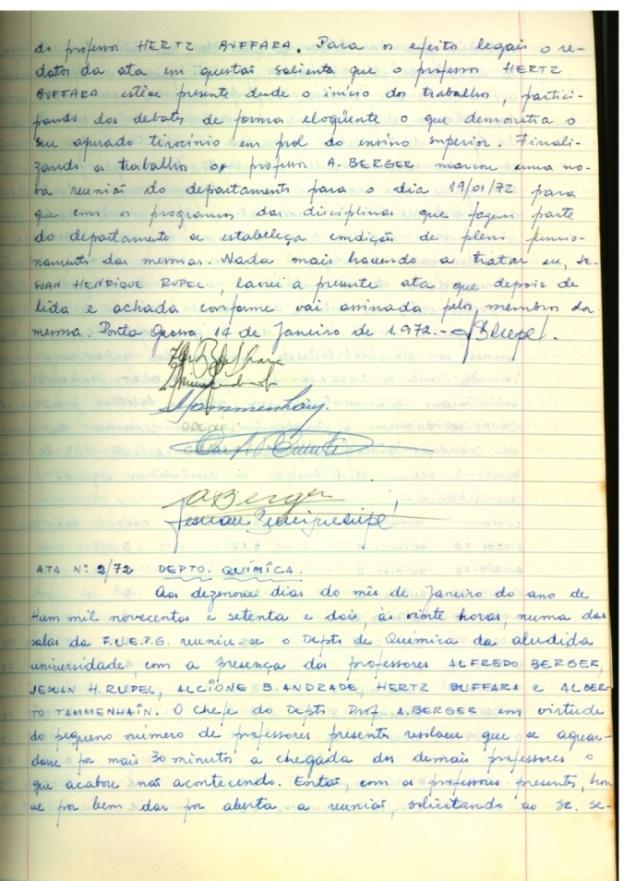 do professor HERTZ BUFFARA. Para os efeitos legais o re-
dator da ata em questão salienta que o professor HERTZ
BUFFARA esteve presente desde o início dos trabalhos, partici-
pando dos debates de forma eloqüente o que demonstra o
seu apurado tirocínio em prol do ensino superior. Finali-
zando os trabalhos o professor A. BERGER marcou uma no-
va reunião do departamento para o dia 19/01/72 para
que com os programas das disciplinas que fazem parte
do departamento se estabeleça condições de pleno funcio-
namento das mesmas. Nada mais havendo a tratar eu, JE-
SUAN HENRIQUE RUPEL, lavrei a presente ata que depois de
lida e achada conforme vai assinada pelos membros da
mesma. Ponta Grossa 14 de Janeiro de 1972.-
ABerger
ATA Nº 2/72 DEPTO. QUÍMICA.
Aos dezenove dias do mês de Janeiro do ano de
Hum mil novecentos e setenta e dois, às vinte horas, numa das
salas da F.U.E.P.G. reuniu-se o Depto de Química da aludida
universidade, com a presença dos professores ALFREDO BERGER,
JESUAN H. RUPEL, ALCIONE B. ANDRADE, HERTZ BUFFARA e ALBER-
TO TAMMENHAIN. O Chefe do Depto Prof. A. BERGER em virtude
do pequeno número de professores presents resolveu que se aguar-
dasse por mais 30 minutos a chegada dos demais professores o
que acabou não acontecendo. Então, com os professores presents, houv
se por bem dar por aberta a reunião, solicitando ao Sr. se-